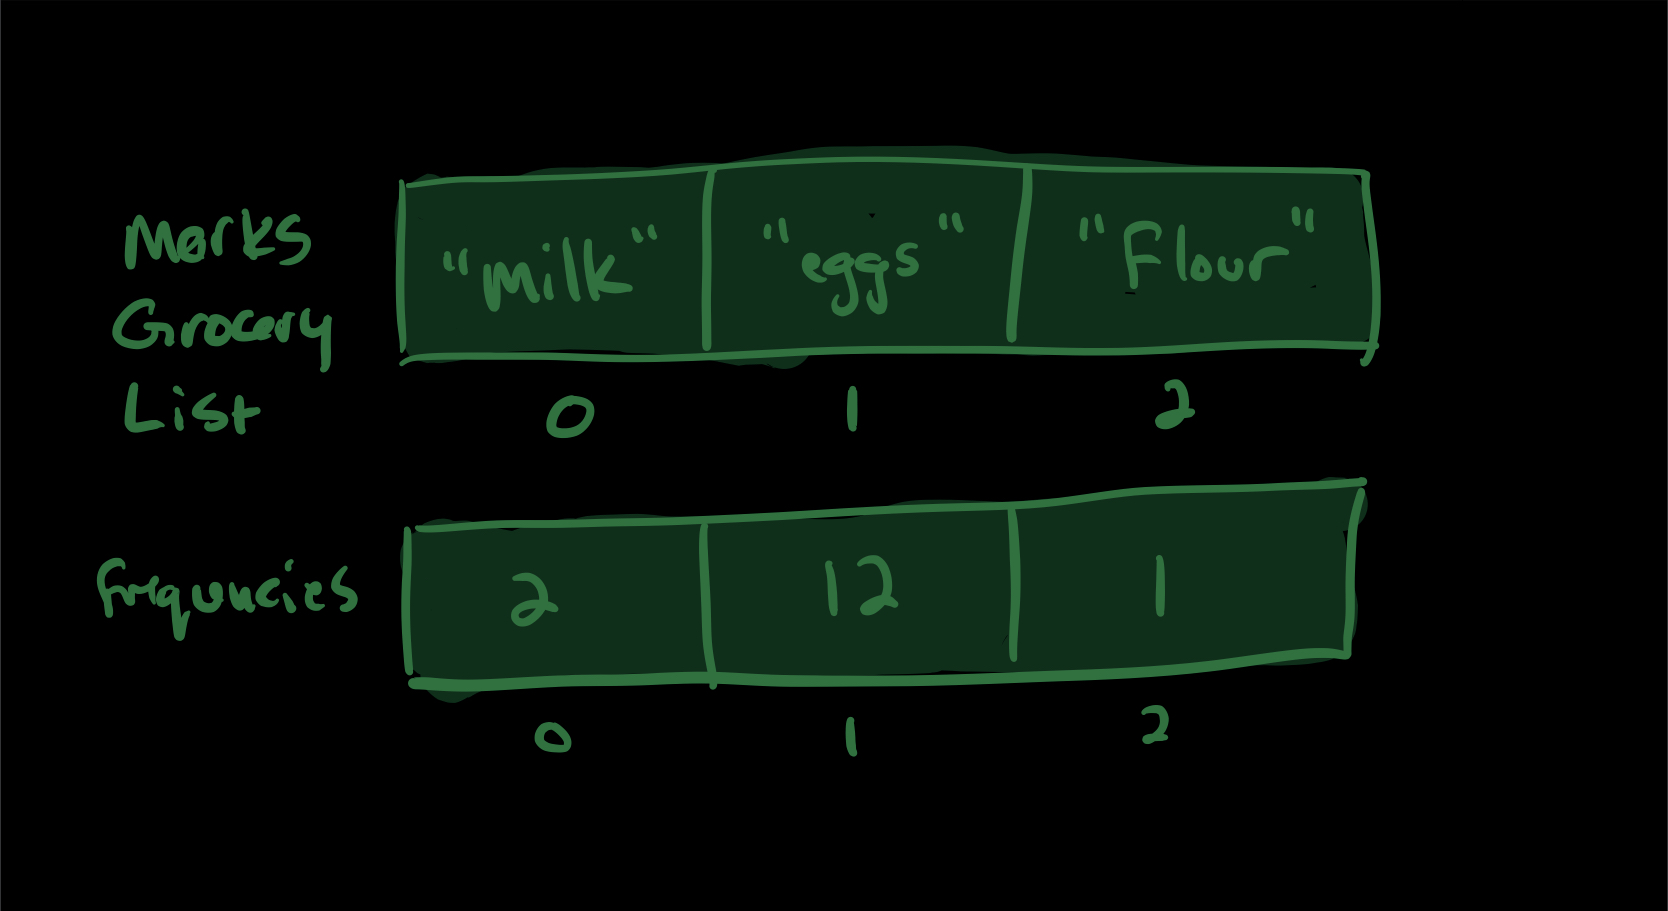 Marks
Grocery
List
"milk" "eggs" "Flour"
0 1 2
frequncies
2 12 1
0 1 2